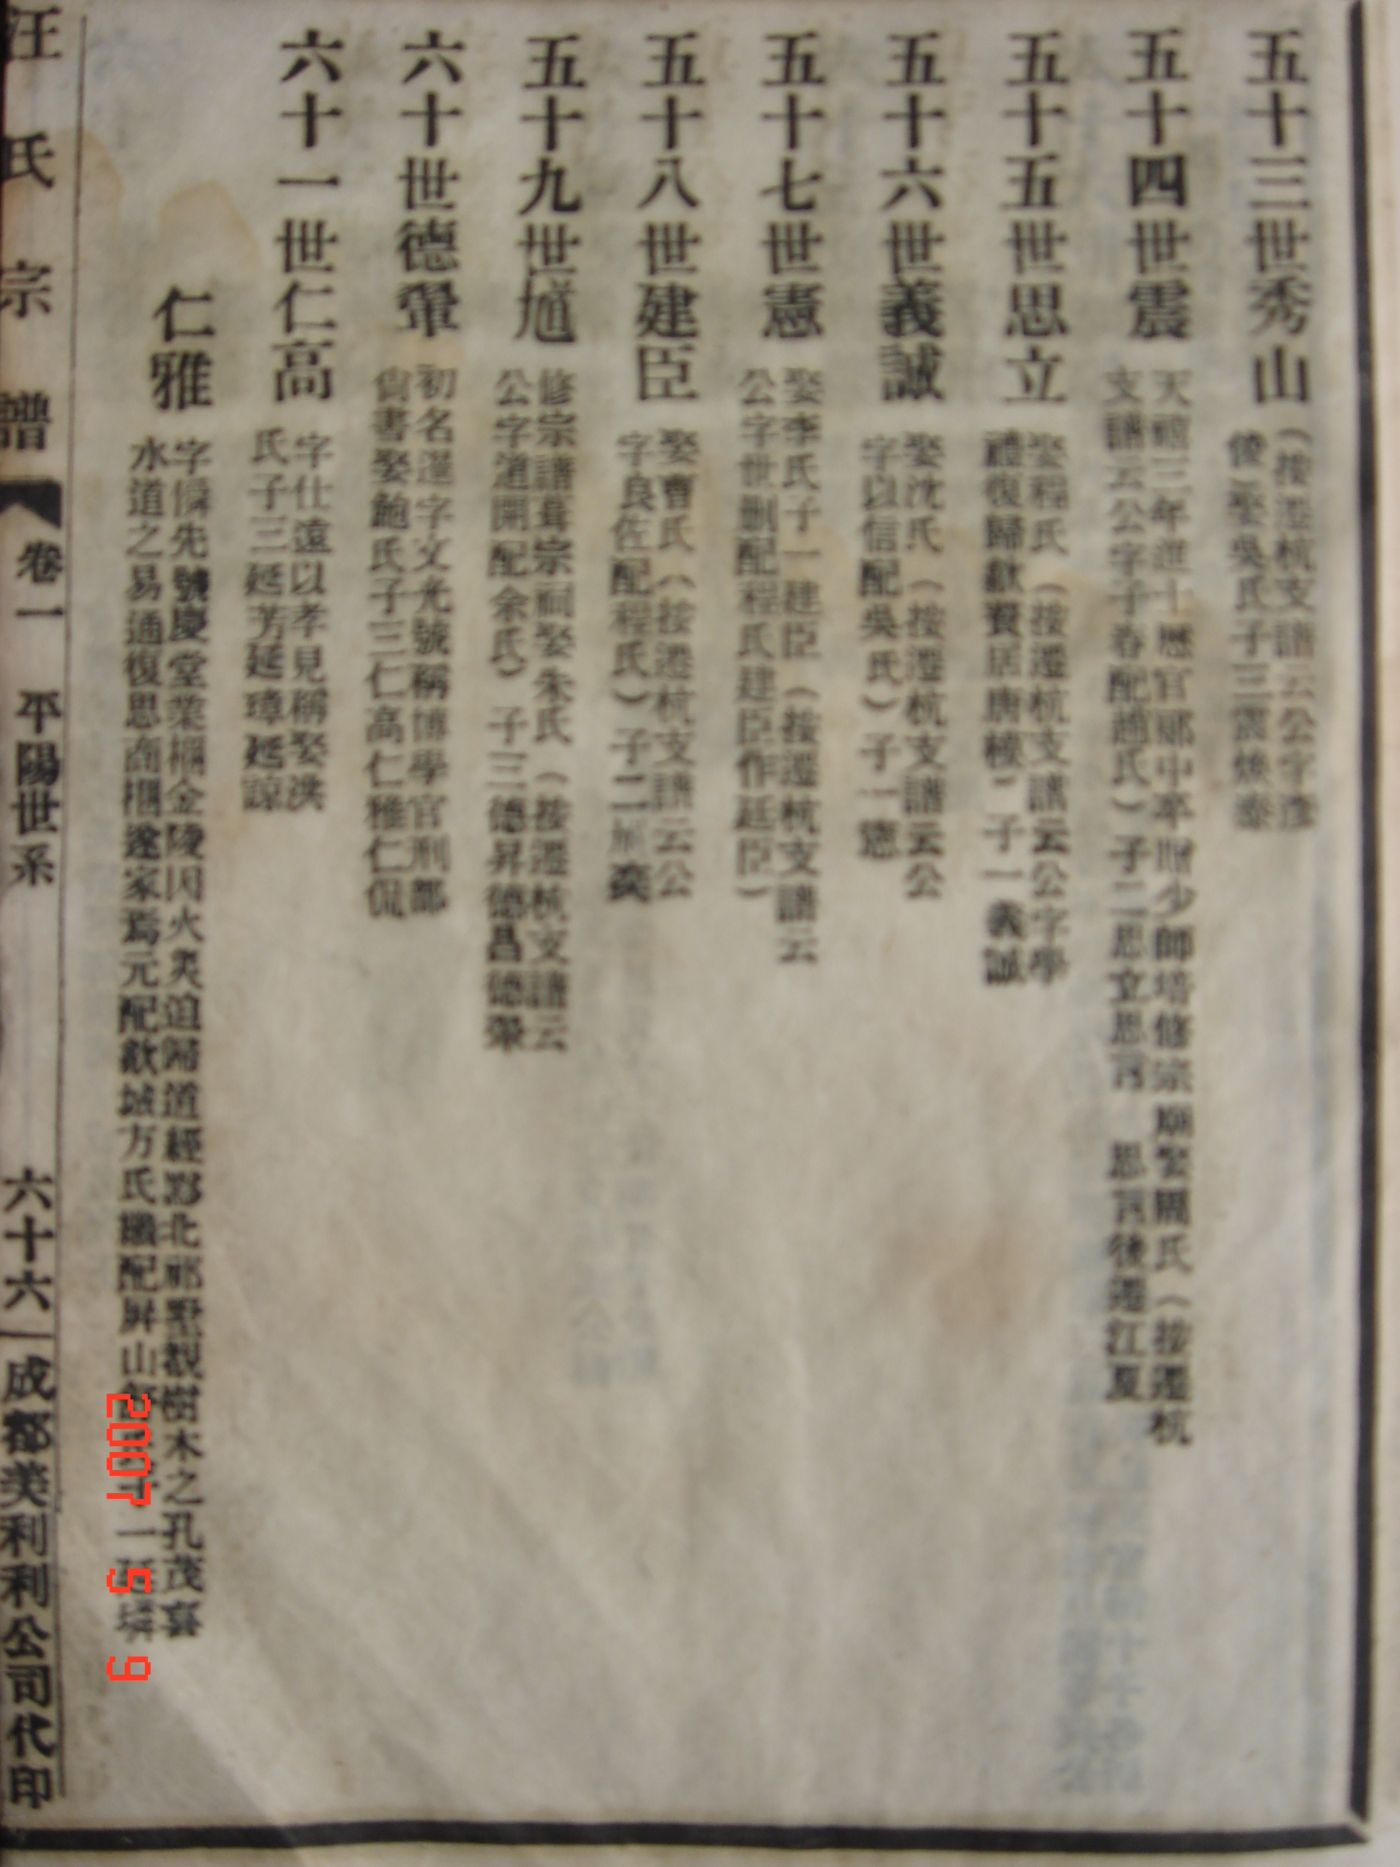 五十三世秀山
(按遷杭支譜云公字彥
俊娶吳氏子三震煥泰
五十四世震
天禧三年進士歷官郞中卒贈少師培修宗廟娶周氏(按遷杭
支譜云公字子春配趙氏)子二思立思言 思言後遷江夏
五十五世思立
娶程氏(按遷杭支譜云公字學
禮復歸歙賓居唐模)子一義誠
五十六世義誠
娶沈氏(按遷杭支譜云公
字以信配吳氏)子一憲
五十七世憲
娶李氏子一建臣(按遷杭支譜云
公字世刪配程氏建臣作廷臣)
五十八世建臣
娶曹氏(按遷杭支譜云公
字良佐配程氏)子二 奕
五十九世
修宗譜葺宗祠娶朱氏(按遷杭支譜云
公字道開配余氏)子三德昇德昌德犖
六十世德犖
初名 字文光號稱博學官刑部
尙書娶鮑氏子三仁高仁雅仁侃
六十一世仁高
字仕遠以孝見稱娶洪
氏子三延芳延璋延諒
仁雅
字 先號慶堂業 金陵因火災迫歸道經黟北祁墅觀樹木之孔茂喜
水道之易通復思商 遂家焉元配歙城方氏繼配屏山 一延
汪氏宗譜 卷一 平陽世系 六十六 成都美利利公司代印
2007 5 9